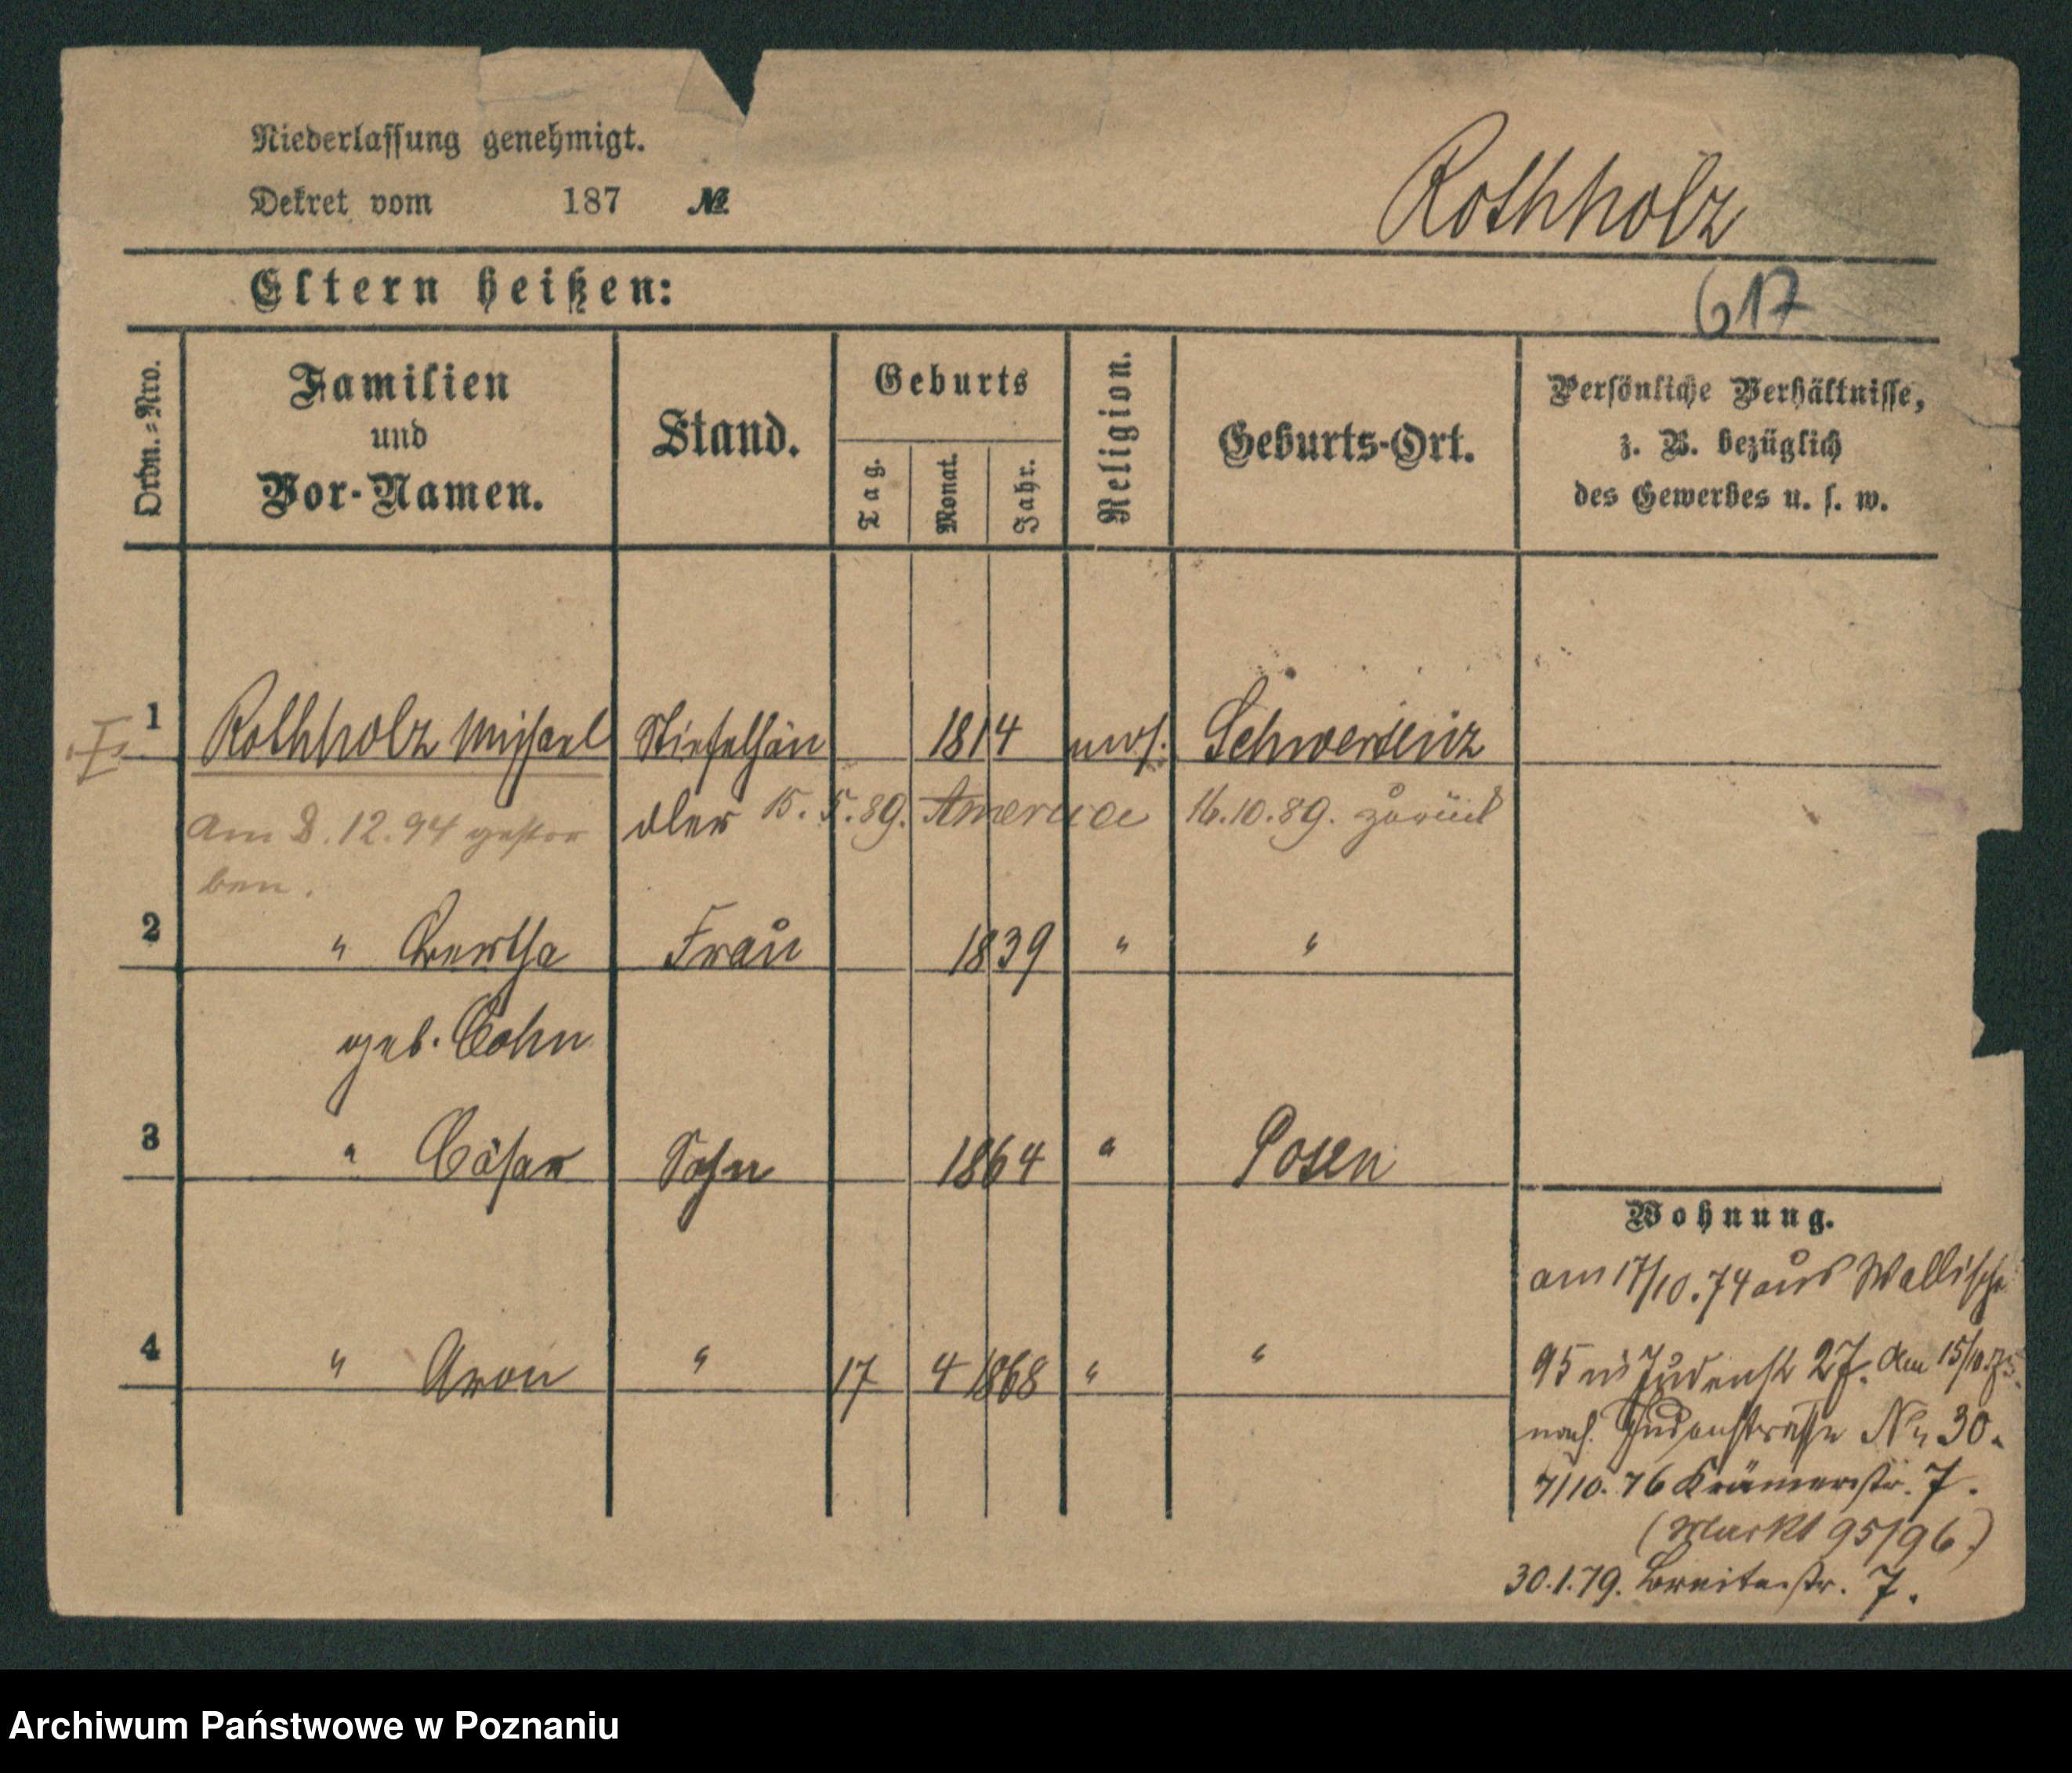 Niederlassung genehmigt.
Dekret vom 187 №
Rothholz
Eltern heißen:
617
Ordn.-Nro.
Familien
und
Vor-Namen.
Stand.
Geburts
Tag.
Monat.
Jahr.
Religion.
Geburts-Ort.
Persönliche Verhältnisse,
z. B. bezüglich
des Gewerbes u. s. w.
I 1 Rothholz Michael Stiefelhän 1814 mos. Schwersenz
dler 15. 5. 89. America 16.10.89. zurück
Am 8.12.94 gestor
ben.
2 " Bertha Frau 1839 " "
geb. Cohn
3 " Cäsar Sohn 1864 " Posen
4 " Aron " 17 4 1868 " "
Wohnung.
am 17/10.74 aus Wallische
95 n. Judenstr 27. Am 15/10.
nach Judenstrasse No 30.
7/10.76 Krämerstr. 7.
(Markt 95/96.)
30.1.79. Breitestr. 7.
Archiwum Państwowe w Poznaniu